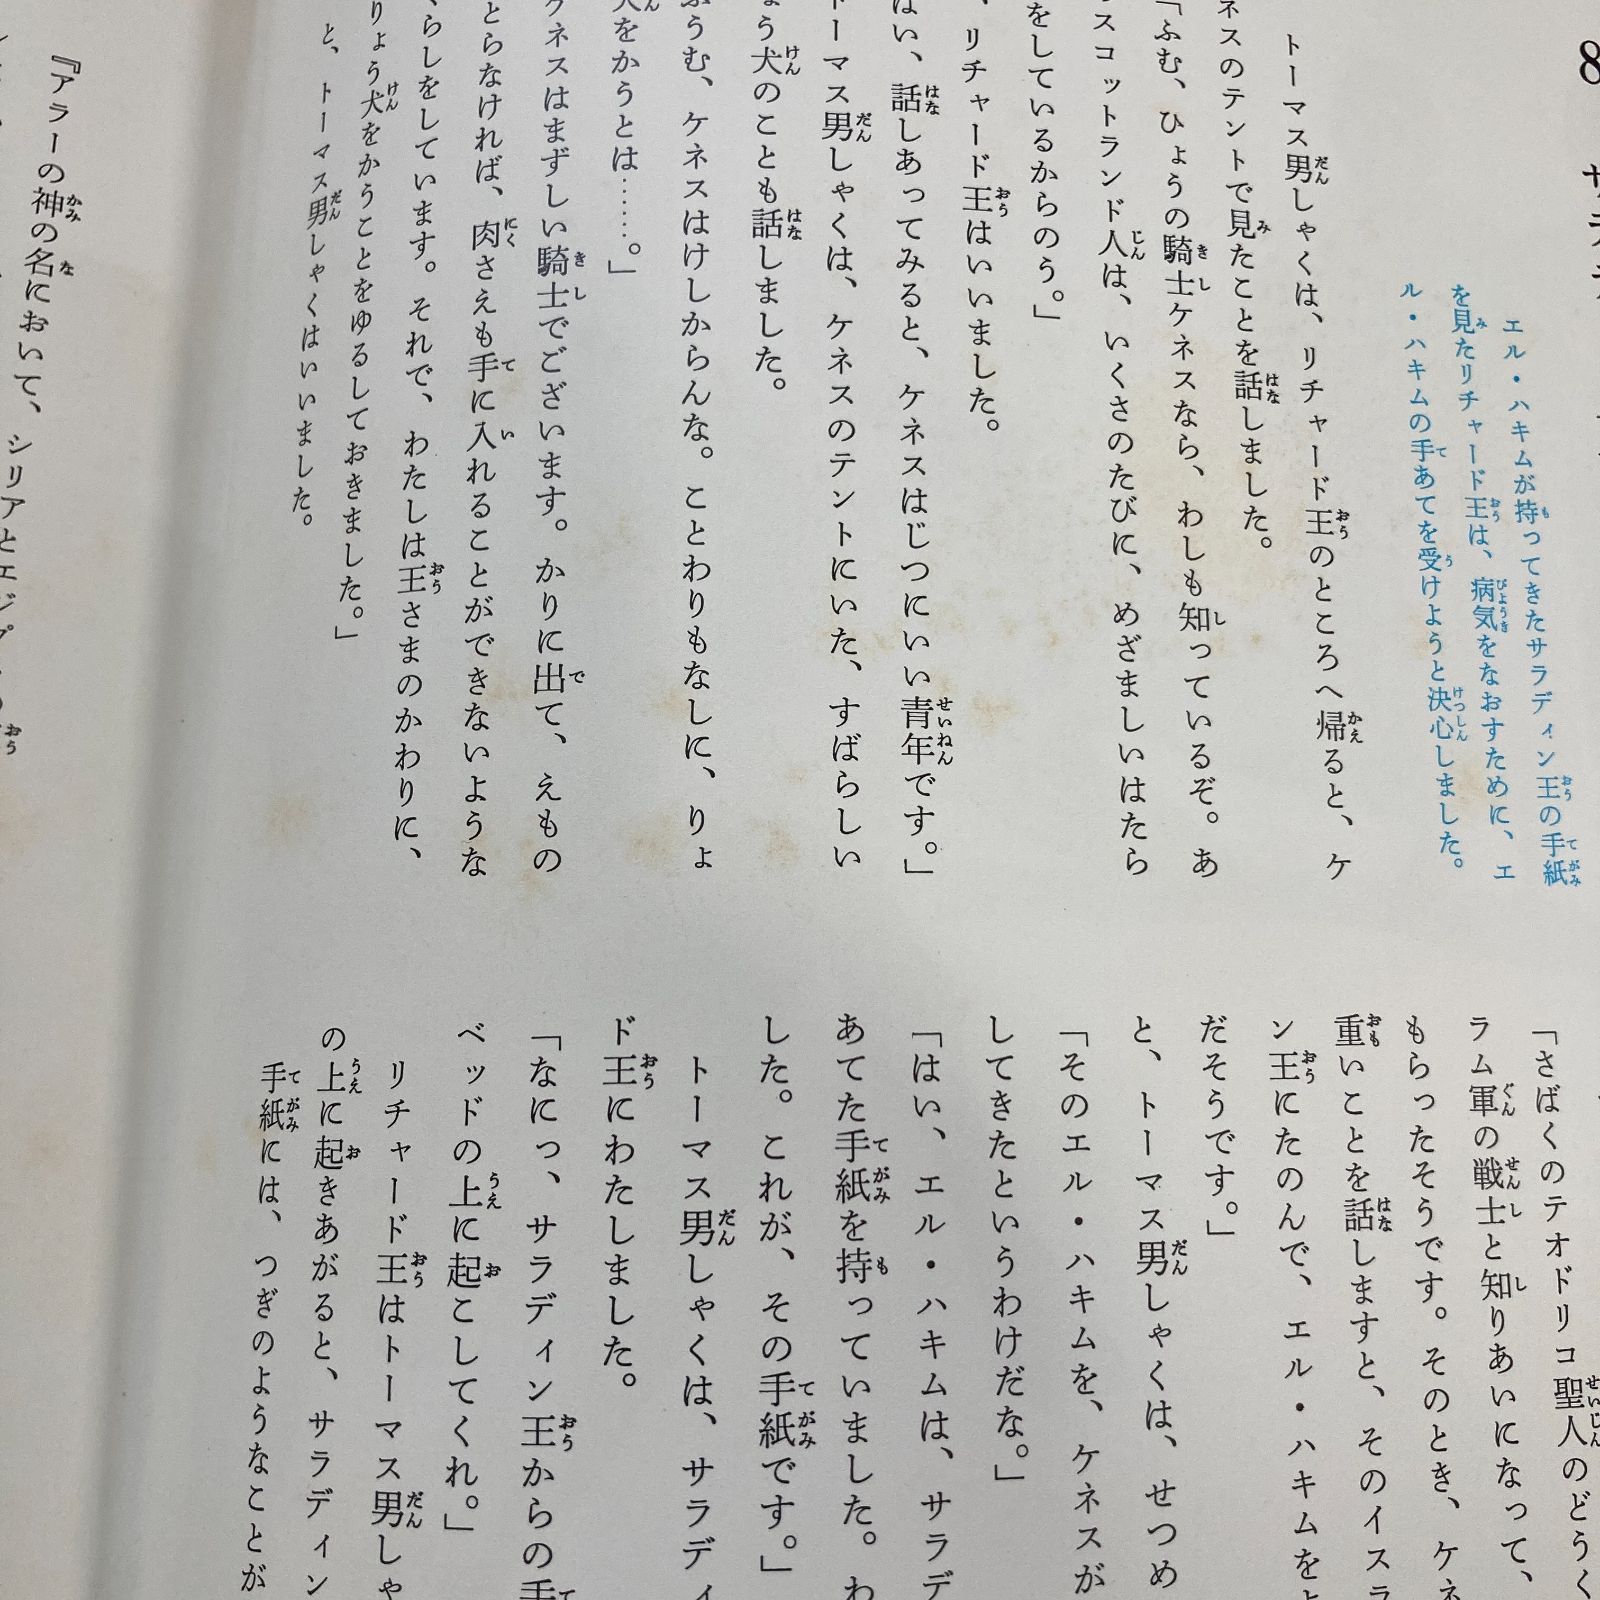 8
エル・ハキムが持ってきたサラディン王の手紙
を見たリチャード王は、病気をなおすために、エ
ル・ハキムの手あてを受けようと決心しました。
トーマス男しゃくは、リチャード王のところへ帰ると、ケ
ネスのテントで見たことを話しました。
「ふむ、ひょうの騎士ケネスなら、わしも知っているぞ。あ
スコットランド人は、いくさのたびに、めざましいはたら
をしているからのう。」
、リチャード王はいいました。
はい、話しあってみると、ケネスはじつにいい青年です。」
トーマス男しゃくは、ケネスのテントにいた、すばらしい
ょう犬のことも話しました。
ふうむ、ケネスはけしからんな。ことわりもなしに、りょ
犬をかうとは……。」
ケネスはまずしい騎士でございます。かりに出て、えもの
とらなければ、肉さえも手に入れることができないような
らしをしています。それで、わたしは王さまのかわりに、
りょう犬をかうことをゆるしておきました。」
と、トーマス男しゃくはいいました。
「さばくのテオドリコ聖人のどうく
ラム軍の戦士と知りあいになって、
もらったそうです。そのとき、ケネ
重いことを話しますと、そのイスラ
ン王にたのんで、エル・ハキムをよ
だそうです。」
と、トーマス男しゃくは、せつめ
「そのエル・ハキムを、ケネスが
してきたというわけだな。」
「はい、エル・ハキムは、サラデ
あてた手紙を持っていました。わ
した。これが、その手紙です。」
トーマス男しゃくは、サラディ
ド王にわたしました。
「なにっ、サラディン王からの手
ベッドの上に起こしてくれ。」
リチャード王はトーマス男しゃ
の上に起きあがると、サラディン
手紙には、つぎのようなことが
『アラーの神の名において、シリアとエジプ